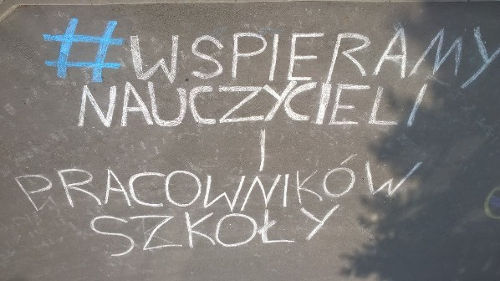 #WSPIERAMY
NAUCZYCIELI
I
PRACOWNIKÓW
SZKOŁY